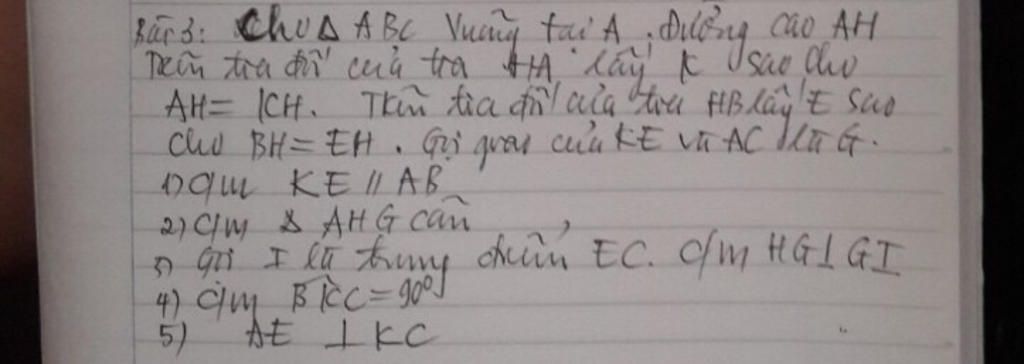 Bài 3: Cho Δ ABC Vuông tại A. Đường cao AH
Trên tia đối của tia HA lấy K sao cho
AH = KH. Trên tia đối của tia HB lấy E sao
cho BH = EH. Gọi giao của KE và AC là G.
1) C/m KE // AB
2) C/m Δ AHG cân
3) Gọi I là trung điểm EC. C/m HG ⊥ GI
4) C/m BKC = 90°
5) AE ⊥ KC